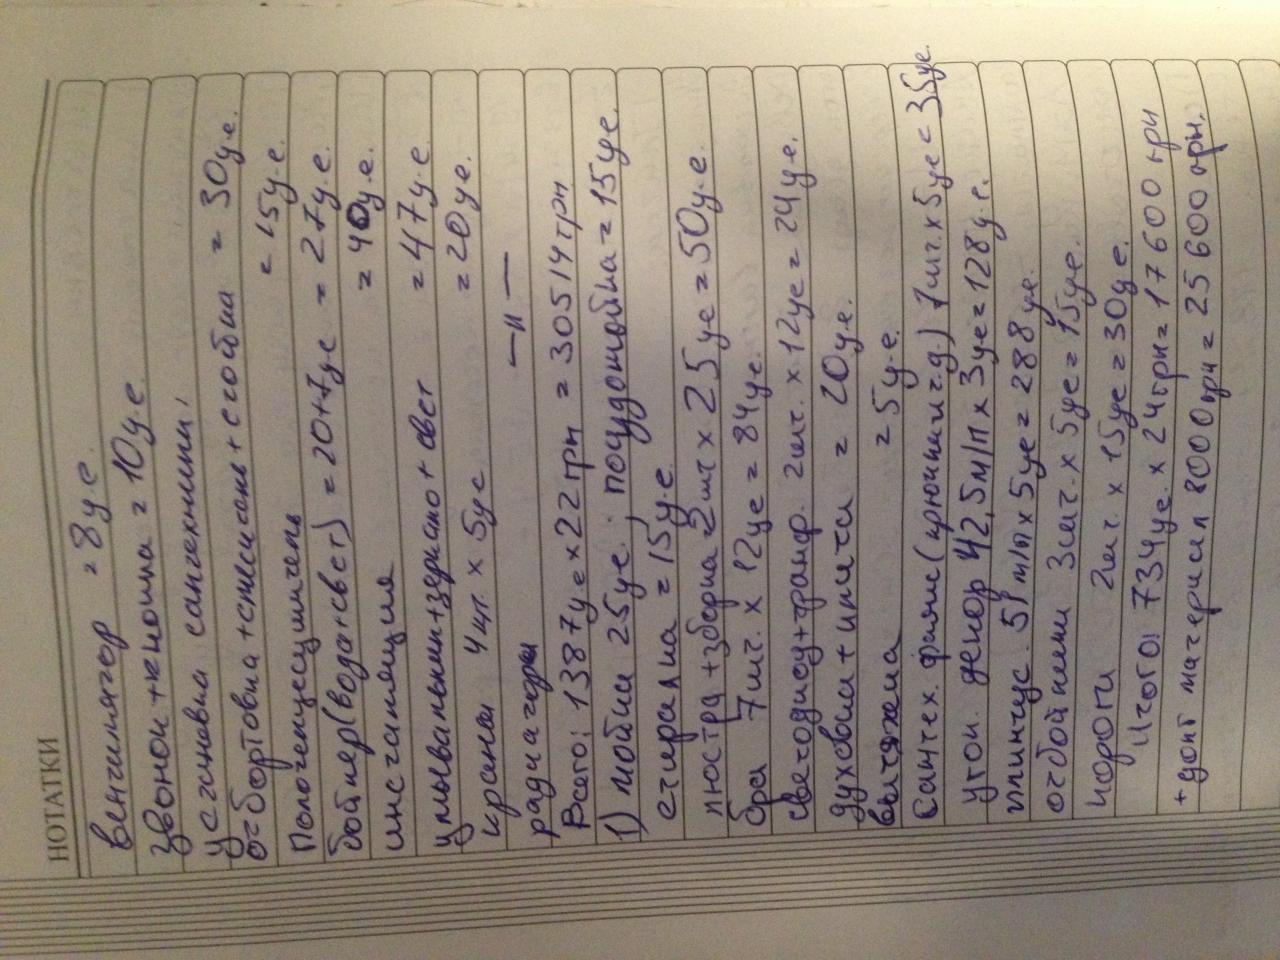 НОТАТКИ
вентилятор = 8 у.е.
звонок + кнопка = 10 у.е.
установка сантехники:
отбортовка + смесит + = 30 у.е.
= 15 у.е.
Полотенцесушитель = 27 у.е.
бойлер (вода + свет) = 20+7 уе
инсталяция = 40 у.е.
умывальник + зеркало + свет = 47 у.е.
краны 4 шт. x 5 уе = 20 уе.
радиаторы —"—
Всего: 1387 у.е x 22 грн = 30514 грн
1) мойка 25 уе., посудомойка = 15 уе.
стиралка = 15 уе
люстра + зборка 2 шт x 25 уе = 50 у.е.
бра 7 шт. x 12 уе = 84 уе.
светодиод + трансф. 2 шт. x 12 уе = 24 у.е.
духовка + плита = 20 у.е.
вытяжка = 5 у.е.
Сантех. (крючки и т.д) 7 шт. x 5 уе = 35 уе.
угол. декор 42,5 м/п x 3 уе = 128 у.е.
плинтус. 51 м/п x 5 уе = 288 уе.
отбойники 3 шт. x 5 уе = 15 уе.
пороги 2 шт. x 15 уе = 30 уе.
Итого: 734 уе. x 24 грн = 17600 грн
+ доп материал 8000 грн = 25600 грн.